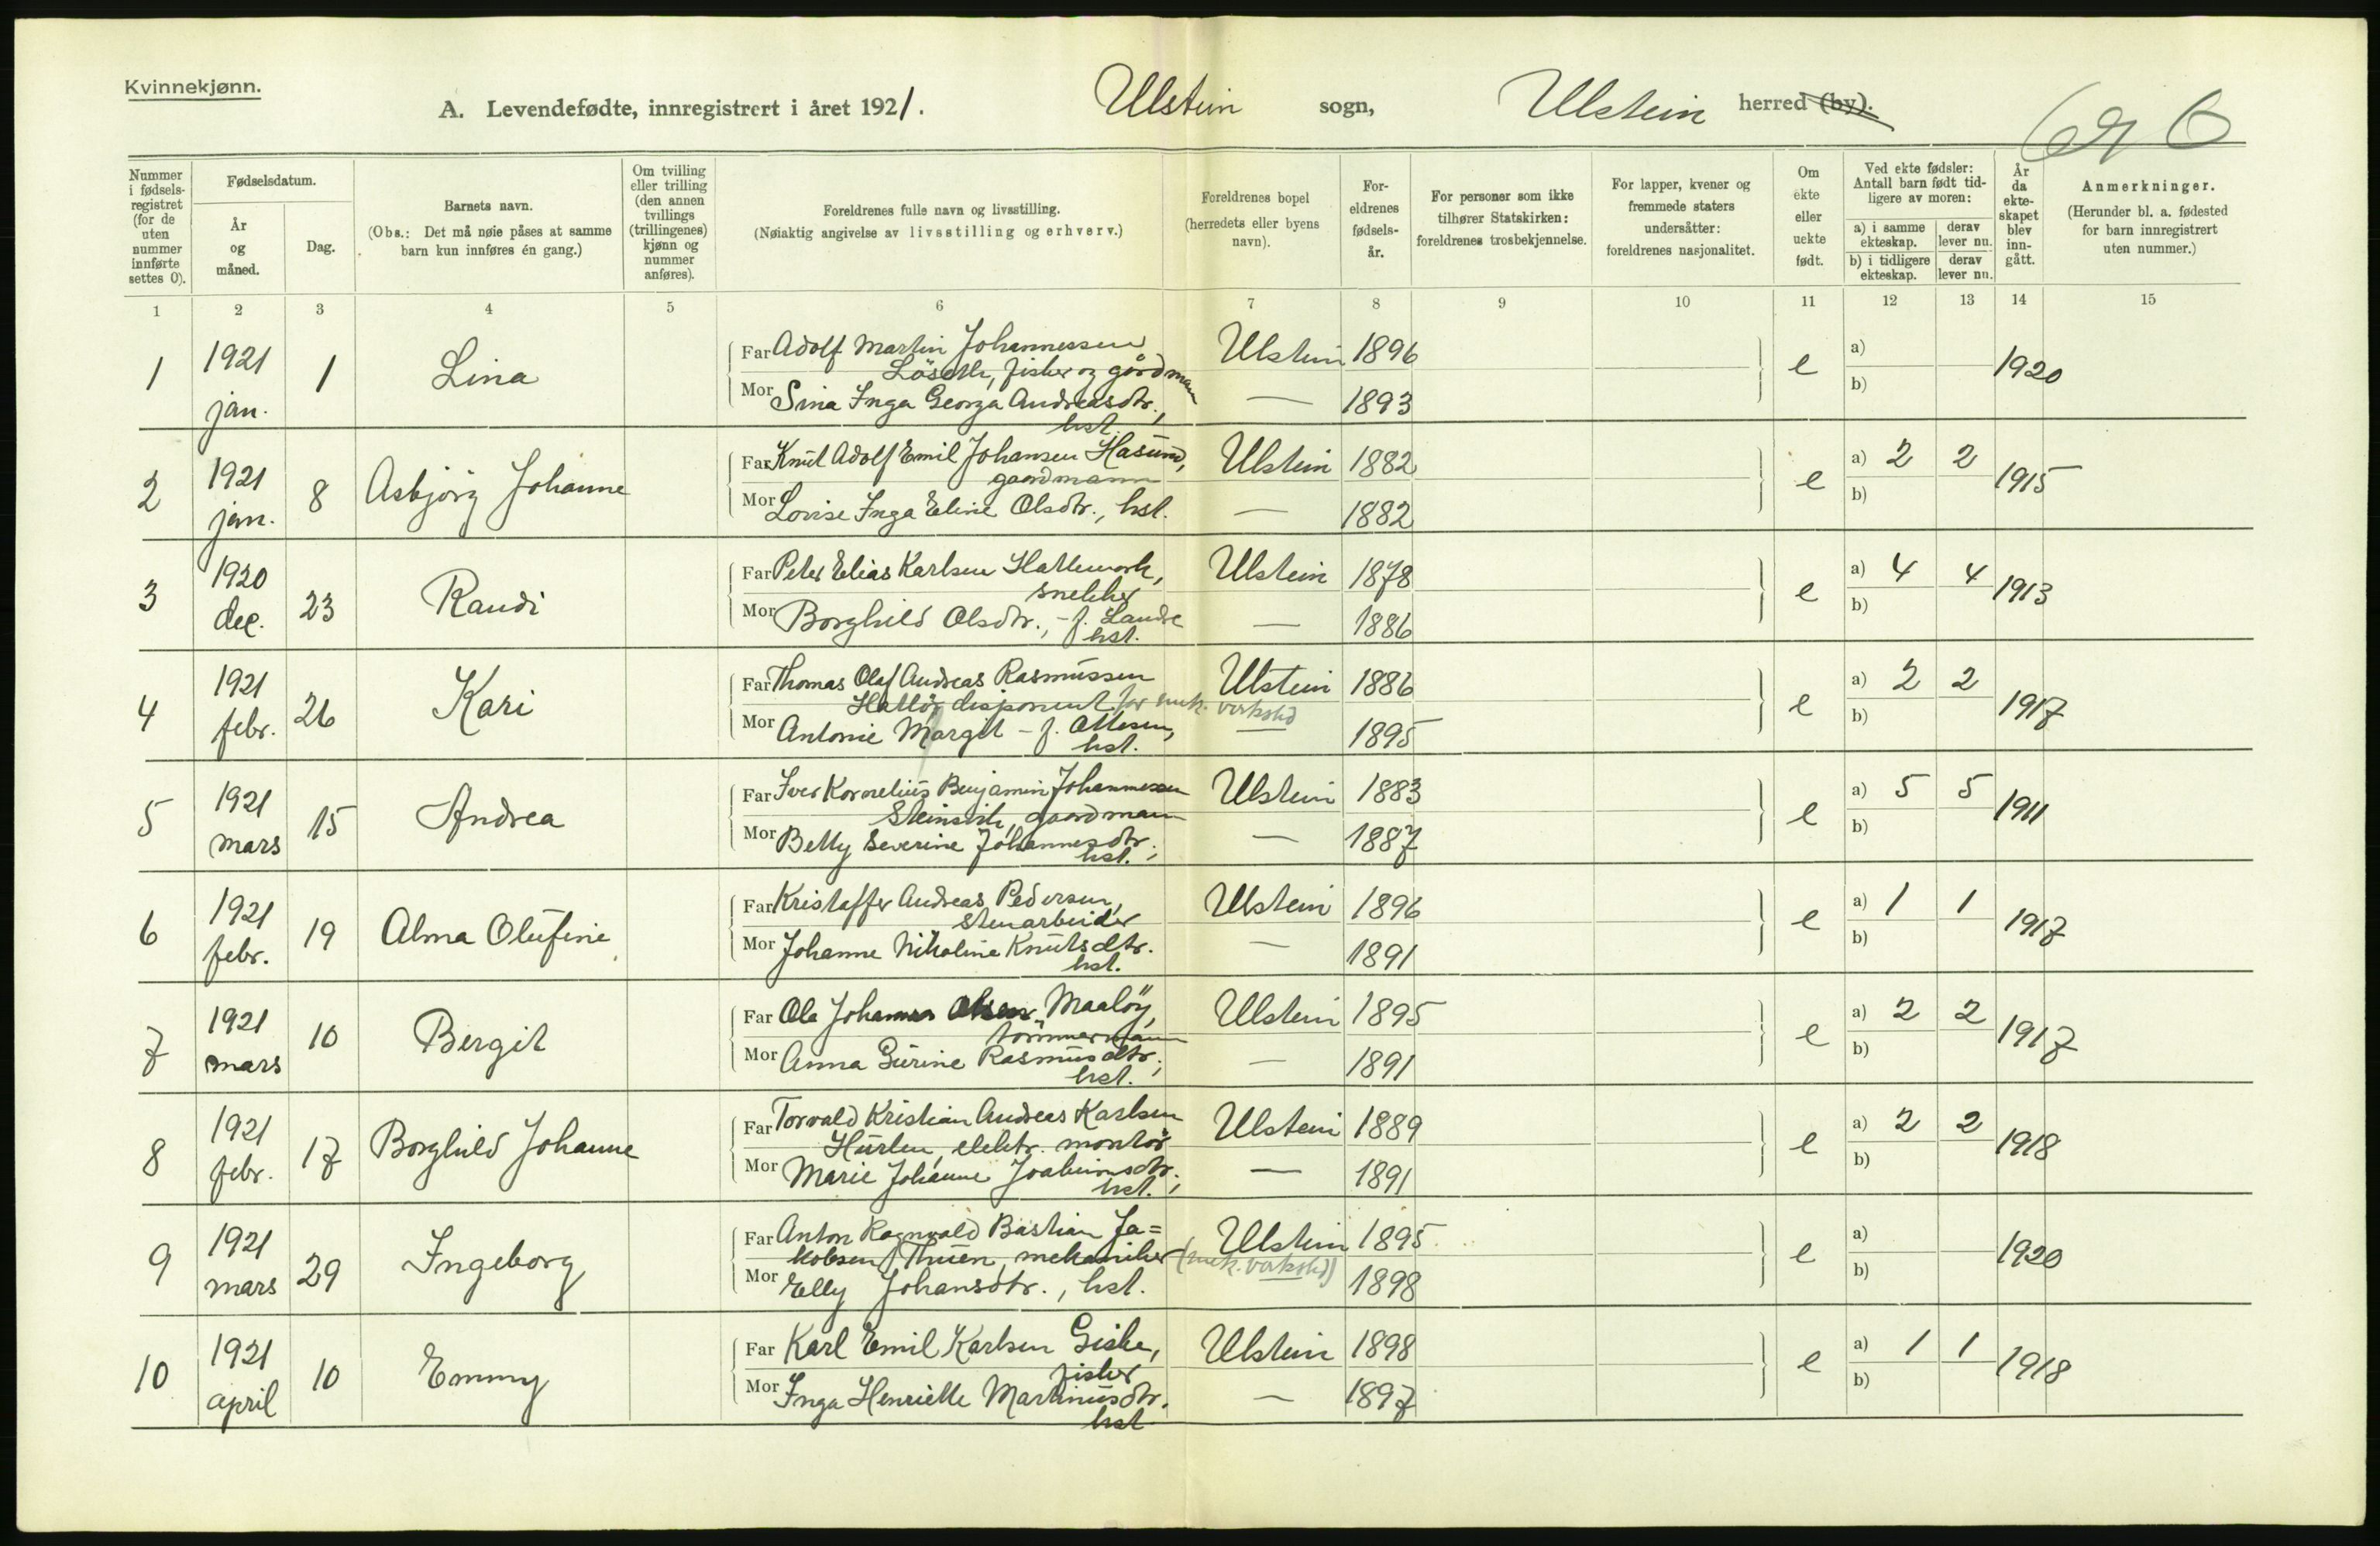 Kvinnekjønn.
A. Levendefødte, innregistrert i året 1921. Ulstein sogn, Ulstein herred (by).
Nummer i fødsels-registret (for de uten nummer innførte settes 0).
Fødselsdatum.
År og måned.
Dag.
Barnets navn.
(Obs.: Det må nøie påses at samme barn kun innføres én gang.)
Om tvilling eller trilling (den annen tvillings (trillingenes) kjønn og nummer anføres).
Foreldrenes fulle navn og livsstilling.
(Nøiaktig angivelse av livsstilling og erhverv.)
Foreldrenes bopel (herredets eller byens navn).
For-eldrenes fødsels-år.
For personer som ikke tilhører Statskirken: foreldrenes trosbekjennelse.
For lapper, kvener og fremmede staters undersåtter: foreldrenes nasjonalitet.
Om ekte eller uekte født.
Ved ekte fødsler: Antall barn født tid-ligere av moren:
a) i samme ekteskap. derav lever nu.
b) i tidligere ekteskap. derav lever nu.
År da ekte-skapet blev inn-gått.
Anmerkninger.
(Herunder bl. a. fødested for barn innregistrert uten nummer.)
1 2 3 4 5 6 7 8 9 10 11 12 13 14 15
1 1921 jan. 1 Lina
Far Adolf Martin Johannessen Ulstein 1896 e a) 1920
Löseth, fisker og gårdmann
Mor Sina Inga Georga Andreasdtr., — 1893 b)
hst.
2 1921 jan. 8 Asbjörg Johanne
Far Knut Adolf Emil Johansen Hasund, Ulstein 1882 e a) 2 2 1915
gaardmann
Mor Lovise Inga Eline Olsdtr., hst. — 1882 b)
3 1920 dec. 23 Randi
Far Peter Elias Karlsen Hatlemark, Ulstein 1878 e a) 4 4 1913
snekker
Mor Borghild Olsdtr., - f. Landre — 1886 b)
hst.
4 1921 febr. 26 Kari
Far Thomas Olaf Andreas Rasmussen Ulstein 1886 e a) 2 2 1917
Hatlöy disponent for mek. verksted
Mor Antonie Margit - f. Ottesen, — 1895 b)
hst.
5 1921 mars 15 Andrea
Far Iver Kornelius Benjamin Johannessen Ulstein 1883 e a) 5 5 1911
Steinsvik, gaardmann
Mor Betty Severine Johannesdtr., — 1887 b)
hst.
6 1921 febr. 19 Alma Olufine
Far Kristaffer Andreas Pedersen, Ulstein 1896 e a) 1 1 1917
stenarbeider
Mor Johanne Nikoline Knutsdtr. — 1891 b)
hst.
7 1921 mars 10 Bergit
Far Ole Johannes Olsen Maalöy, Ulstein 1895 e a) 2 2 1917
tömmermann
Mor Anna Gurine Rasmusdtr., — 1891 b)
hst.
8 1921 febr. 17 Borghild Johanne
Far Torvald Kristian Andreas Karlsen Ulstein 1889 e a) 2 2 1918
Hurlen, elektr. montör
Mor Marie Johanne Joakimsdtr., — 1891 b)
hst.
9 1921 mars 29 Ingeborg
Far Anton Ragnvald Bastian Ja= Ulstein 1895 e a) 1920
kobsen Thuen, mekaniker (mek. verksted)
Mor Elly Johansdtr., hst. — 1898 b)
10 1921 april 10 Emmy
Far Karl Emil Karlsen Giske, Ulstein 1898 e a) 1 1 1918
fisker
Mor Inga Henriette Martinusdtr. — 1897 b)
hst.